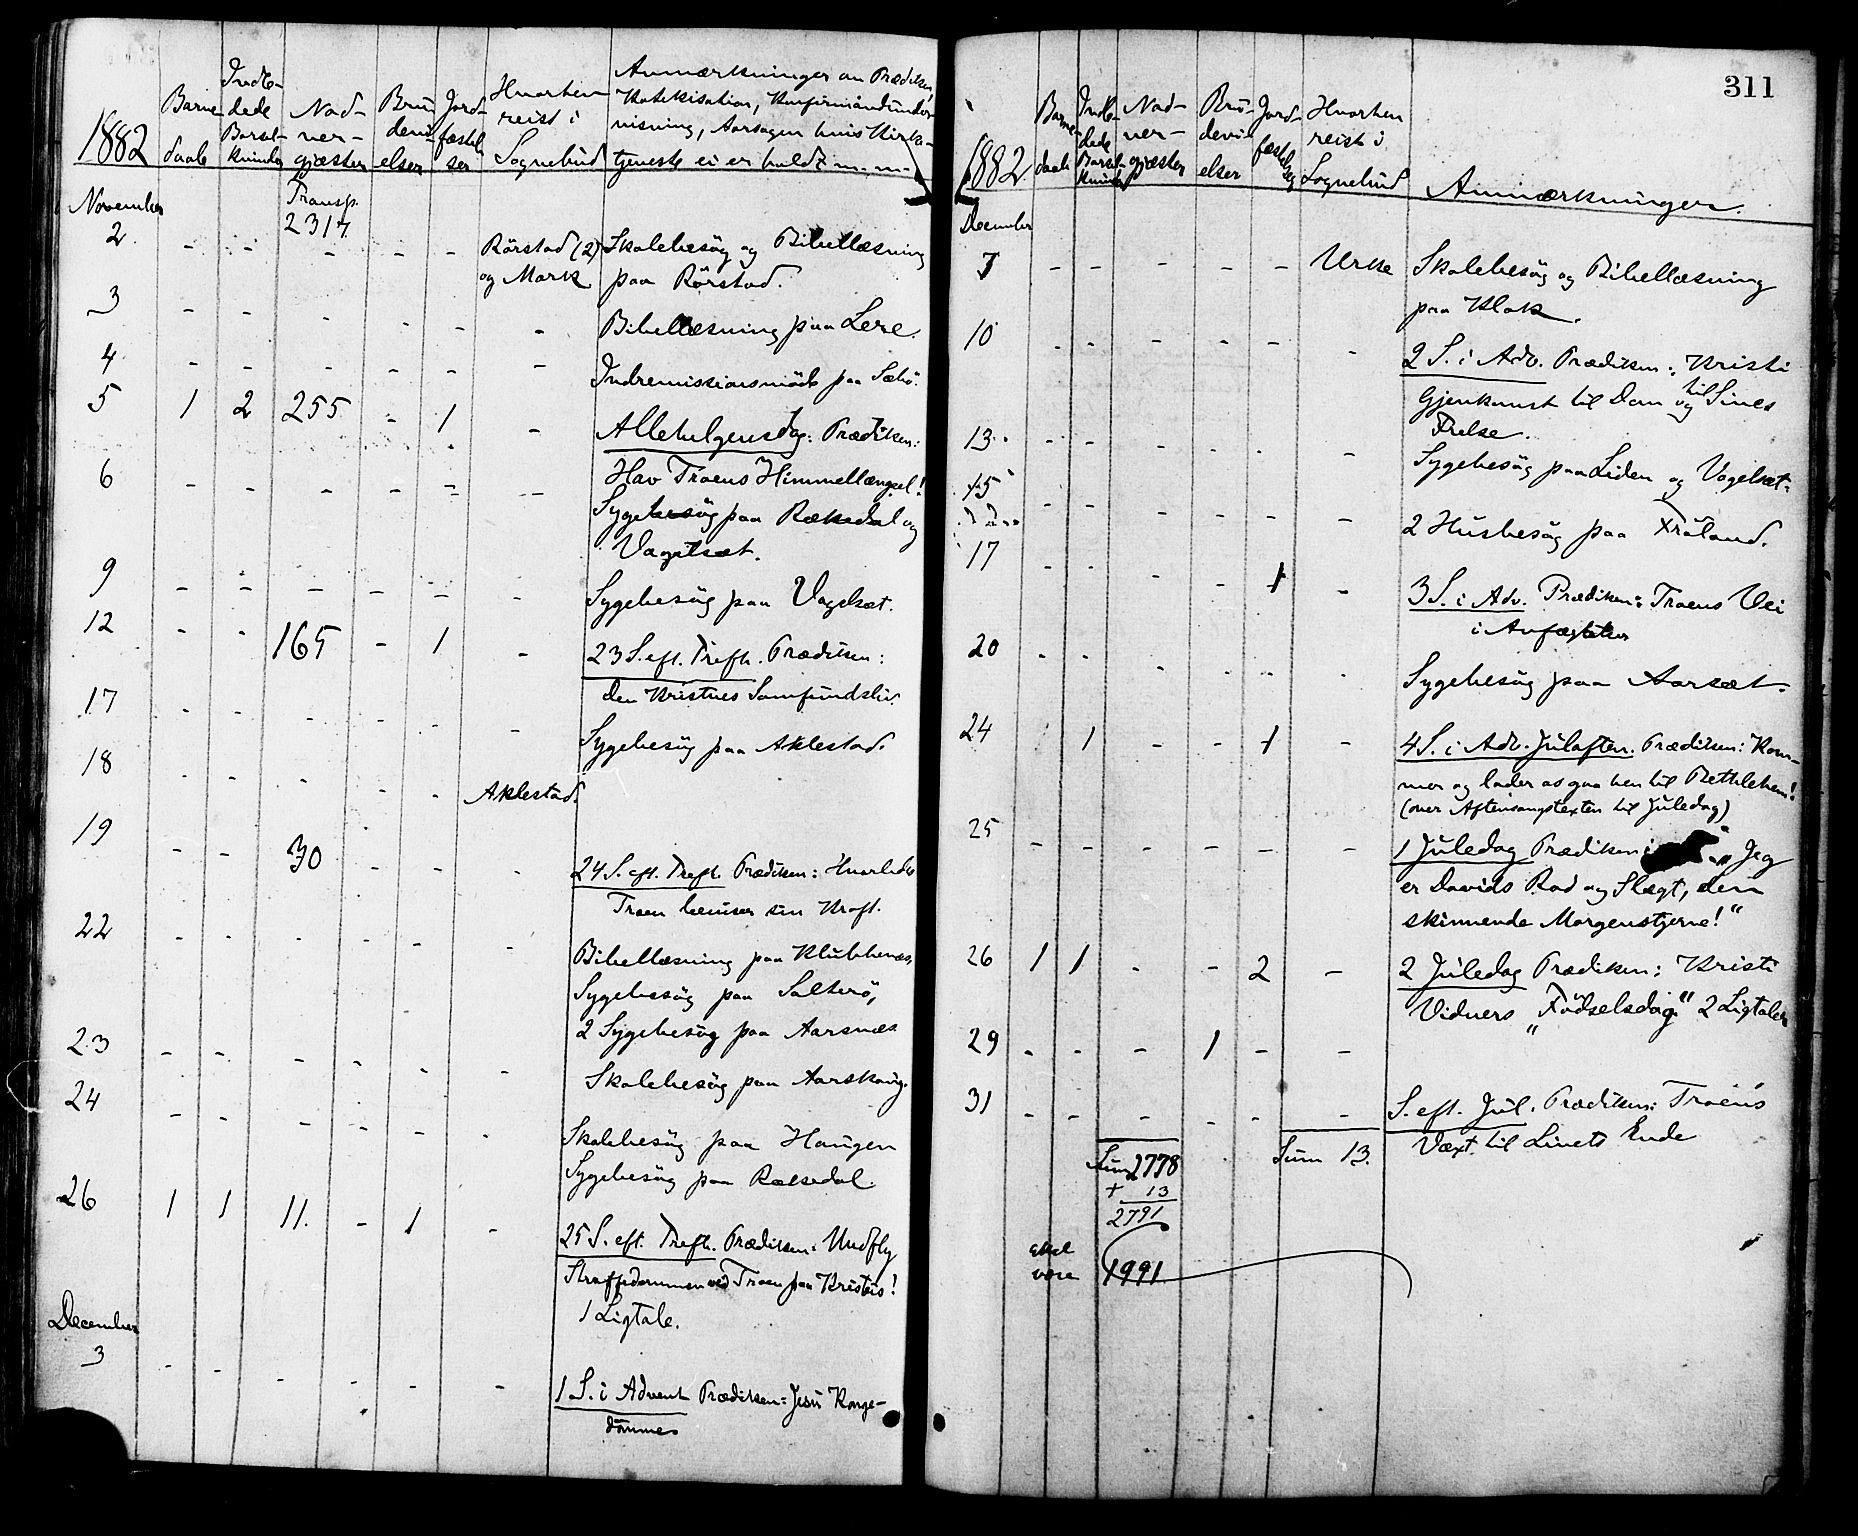 1882
Barne-
daab
Indle-
dede
Barsel-
kvinder
Nad-
ver-
gjæster
Bru-
devi-
elser
Jord-
fæstel-
ser
Hvorhen
reist i
Sognebud
Anmærkninger om Prædiken,
Katekisation, Konfirmandunder-
visning, Aarsagen hvis Kirke-
tjeneste ei er holdt m. m.
November Transp.
2317.
2 - - - - - Rörstad (2) Skolebesög og Bibellæsning
og Mork paa Rörstad.
3 - - - - - - Bibellæsning paa Lere.
4 - - - - - - Indremissionsmöde paa Sæbö.
5 1 2 255 - 1 - Allehelgensdag: Prædiken:
Hav Troens Himmellængsel!
6 - - - - - - Sygebesög paa Rækedal og
Vagelsæt.
9 - - - - - - Sygebesög paa Vagelsæt.
12 - - 165 - 1 - 23 S. eft. Trefh. Prædiken:
den Kristnes Samfundsliv.
17 - - - - - - Sygebesög paa Aklestad.
18 - - - - - Aklestad.
19 - - 30 - - - 24 S. eft. Trefh. Prædiken: Hvorledes
Troen beviser sin Kraft.
22 - - - - - - Bibellæsning paa Klubbenæs,
Sygebesög paa Salterö,
2 Sygebesög paa Aarsnæs
23 - - - - - - Skolebesög paa Aarskoug.
24 - - - - - - Skolebesög paa Haugen
Sygebesög paa Rækedal.
26 1 1 11. - 1 - 25 S. eft. Trefh. Prædiken: Undfly
Straffedommen ved Troen paa Kristus!
1 Ligtale.
December
3 - - - - - - 1 S. i Advent Prædiken: Jesu Konge-
dömme
311
1882
Barne-
daab
Indle-
dede
Barsel-
kvinder
Nad-
ver-
gjæster
Bru-
devi-
elser
Jord-
fæstelser
Hvorhen
reist i
Sognebud
Anmærkninger.
December
7 - - - - - Urke Skolebesög og Bibellæsning
paa Klok.
10 - - - - - - 2 S. i Adv. Prædiken: Kristi
Gjenkomst til Dom og til Sines
Frelse.
13 - - - - - - Sygebesög paa Liden og Vagelsæt.
15 - - - - - - 2 Husbesög paa Fröland.
17 - - - - 1 - 3 S. i Adv. Prædiken: Troens Vei
i Anfægtelser
20 - - - - - Sygebesög paa Aarsæt.
24 1 - - 1 - 4 S. i Adv. Juleaften. Prædiken: Kom-
mer og lader os gaa hen til Bethlehem!
(over Aftensangstexten til Juledag)
25 - - - - - - 1 Juledag Prædiken: „Jeg
er Davids Rod og Slægt, den
skinnende Morgenstjerne!"
26 1 1 - - 2 - 2 Juledag Prædiken: Kristi
Vidners „Födselsdag" 2 Ligtaler
29 - - - 1 - -
31 - - - - - - S. eft. Jul. Prædiken: Troens
Væxt til Livets Ende
Sum 2778 Sum 13.
+ 13
2791
skal
være 1991